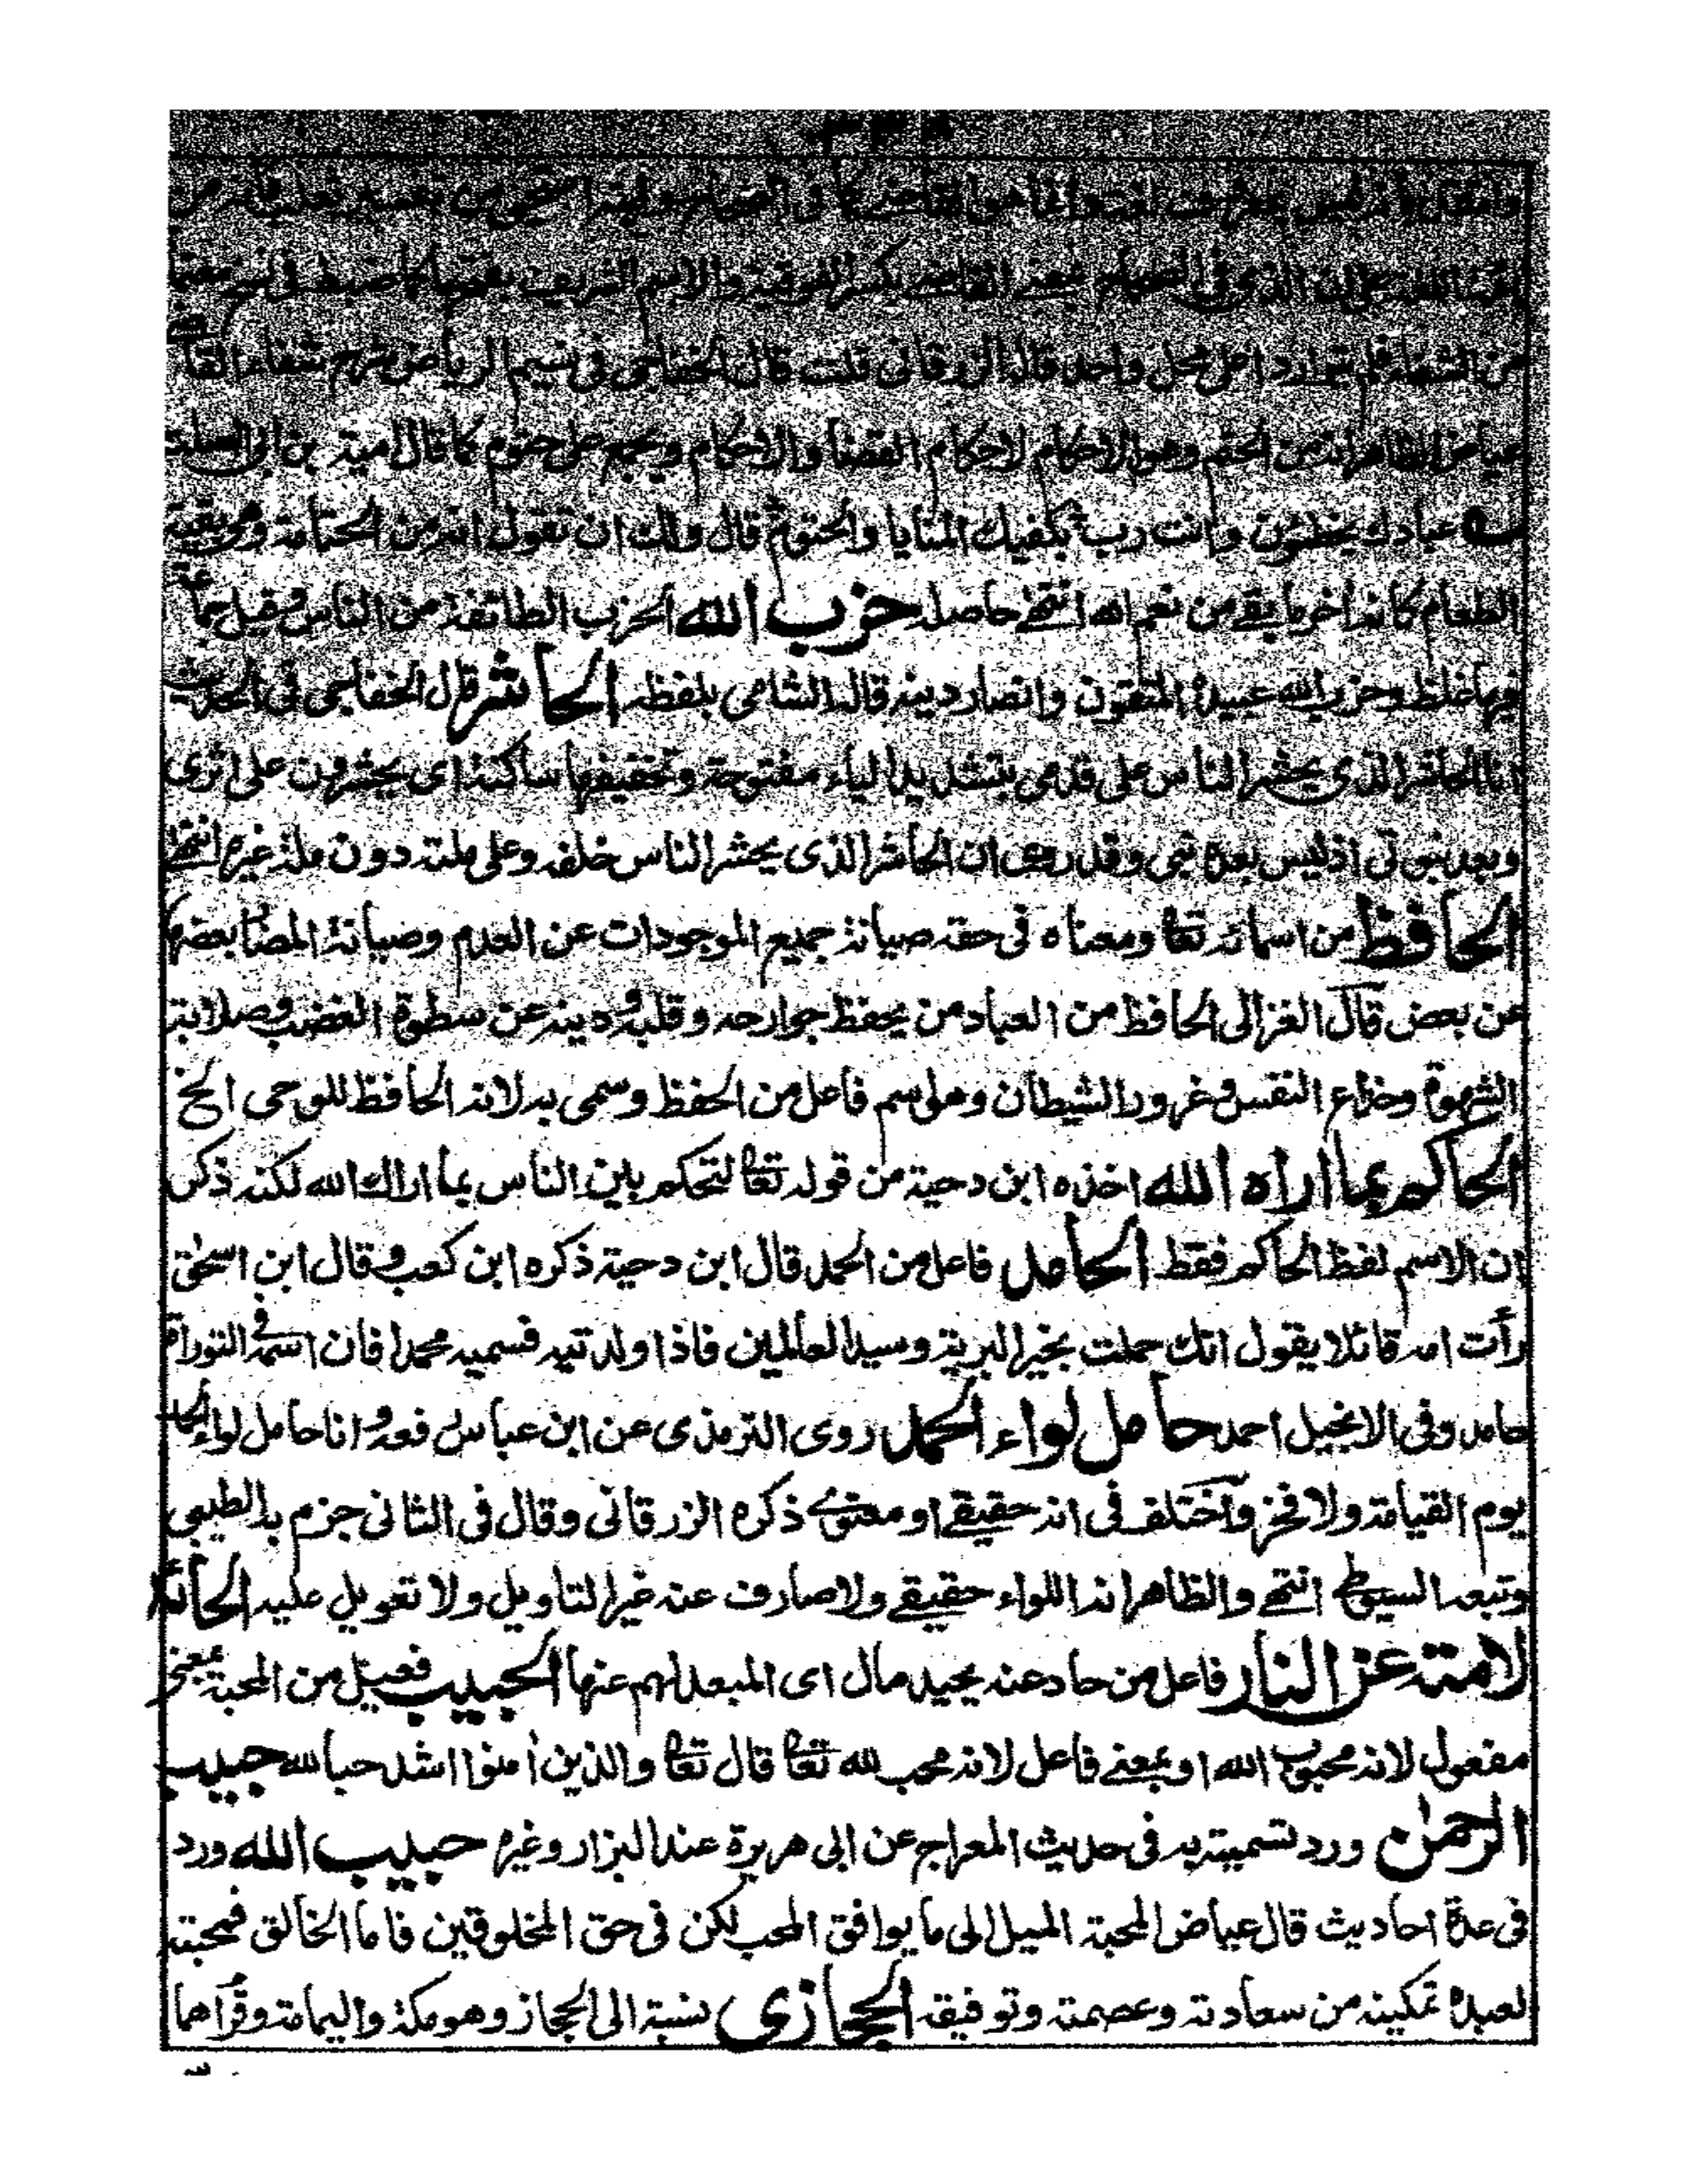 من الشفاء فلم يتواردا على محل واحد قاله الزرقانى قلت قال الخفاجى فى نسيم الرياض شرح شفاء القاضى
عياض الظاهر انه من الحتم وهو الاحكام لاحكام القضأ والاحكام ويجمع على حتوم كما قال امية بن ابى الصلت
عبادك يخطئون وانت رب بكفيك المنايا والحتوم قال ولك ان تقول انه من الحتامة وهى بقية
الطعام كانه اخر ما بقى من نعم الله انتهى حاصله حزب الله الحزب الطائفة من الناس وقيل جماعة
فيها غلظ وحزب الله عبيده المتقون وانصار دينه قاله الشامى بلفظه الحاشر قال الخفاجى فى الحديث
انا الحاشر الذى يحشر الناس على قدمى بتشديد الياء مفتوحة وتخفيفها ساكنة اى يحشرون على اثرى
وبعد نبوتى اذ ليس بعده نبى وقد روى ان الحاشر الذى يحشر الناس خلفه وعلى ملته دون ملة غيره انتهى
الحافظ من اسمائه تعا ومعناه فى حقه صيانة جميع الموجودات عن العدم وصيانة المضا بعضها
عن بعض قال الغزالى الحافظ من العباد من يحفظ جوارحه وقلبه ودينه عن سطوة الغضب وصلابة
الشهوة وخداع النفس وغرور الشيطان وهو اسم فاعل من الحفظ وسمى به لانه الحافظ للوحى الخ
الحاكم بما اراه الله اخذه ابن دحية من قوله تعا لتحكم بين الناس بما اراك الله لكنه ذكر
ان الاسم لفظ الحاكم فقط الحامل فاعل من الحمل قال ابن دحية ذكره ابن كعب وقال ابن اسحق
رأت امه قائلا يقول انك حملت بخير البرية وسيد العالمين فاذا ولدتيه فسميه محمدا فان اسمه فى التوراة
حامد وفى الانجيل احمد حامل لواء الحمد روى الترمذى عن ابن عباس فعه وانا حامل لواء الحمد
يوم القيامة ولا فخر وآختلف فى انه حقيقى او معنوى ذكره الزرقانى وقال فى الثانى جزم به الطيبى
وتبعه السيوطى انتهى والظاهر انه اللواء حقيقى ولا صارف عنه غير التاويل ولا تعويل عليه الحائد
لامته عن النار فاعل من حاد عنه يحيد مال اى المبعد لهم عنها الحبيب فعيل من المحبة بمعنى
مفعول لانه محبوب الله او بمعنى فاعل لانه محب لله تعا قال تعا والذين أمنوا اشد حبا لله حبيب
الرحمن ورد تسميته به فى حديث المعراج عن ابى هريرة عند البزار وغيره حبيب الله ورد
فى عدة احاديث قال عياض المحبة الميل الى ما يوافق المحب لكن فى حق المخلوقين فاما الخالق فمحبته
لعبده تمكينه من سعادته وعصمته وتوفيقه الحجازى نسبة الى الحجاز وهو مكة واليمامة وقرأهما